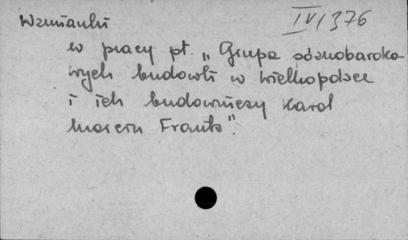 Wzmianki IV/376
w pracy pt. „Grupa późnobaroko-
wych budowli w Wielkopolsce
i ich budowniczy Karol
Marcin Frantz".